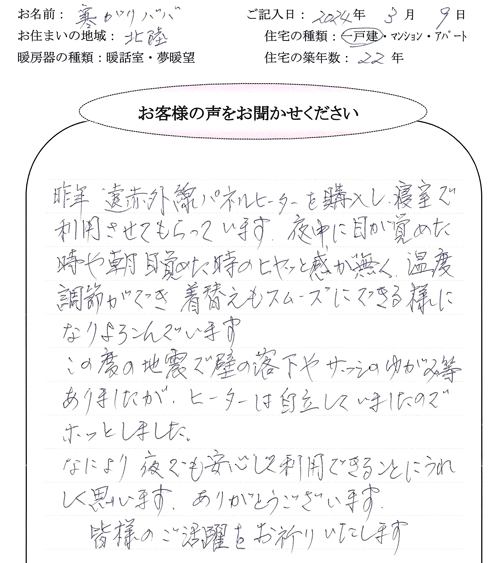 お名前：寒がりババ ご記入日：2024年 3月 9日
お住まいの地域：北陸 住宅の種類：一戸建・マンション・アパート
暖房器の種類：暖話室・夢暖望 住宅の築年数：22年
お客様の声をお聞かせください
昨年 遠赤外線パネルヒーターを購入し、寝室で
利用させてもらっています。夜中に目が覚めた
時や朝目覚めた時のヒヤッと感が無く、温度
調節ができ 着替えもスムーズにできる様に
なりよろこんでいます
この度の地震で壁の落下やサッシのゆがみ等
ありましたが、ヒーターは自立していましたので
ホッとしました。
なにより 夜でも安心して利用できることにうれ
しく思います。ありがとうございます。
皆様のご活躍をお祈りいたします